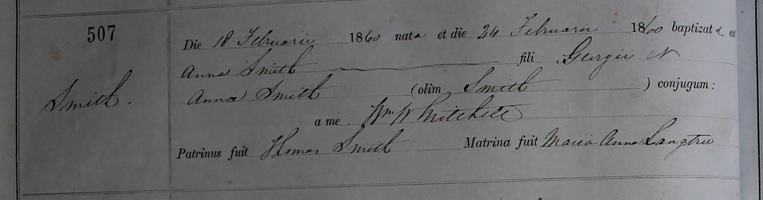 507
Die 18 Februarii 1860 nata et die 24 Februarii 1860 baptizata est
Anna Smith fili Georgii &
Smith. Annæ Smith (olim Smith ) conjugum:
a me Wm W Mitchell
Patrinus fuit Thomas Smith Matrina fuit Maria Anna Langtree